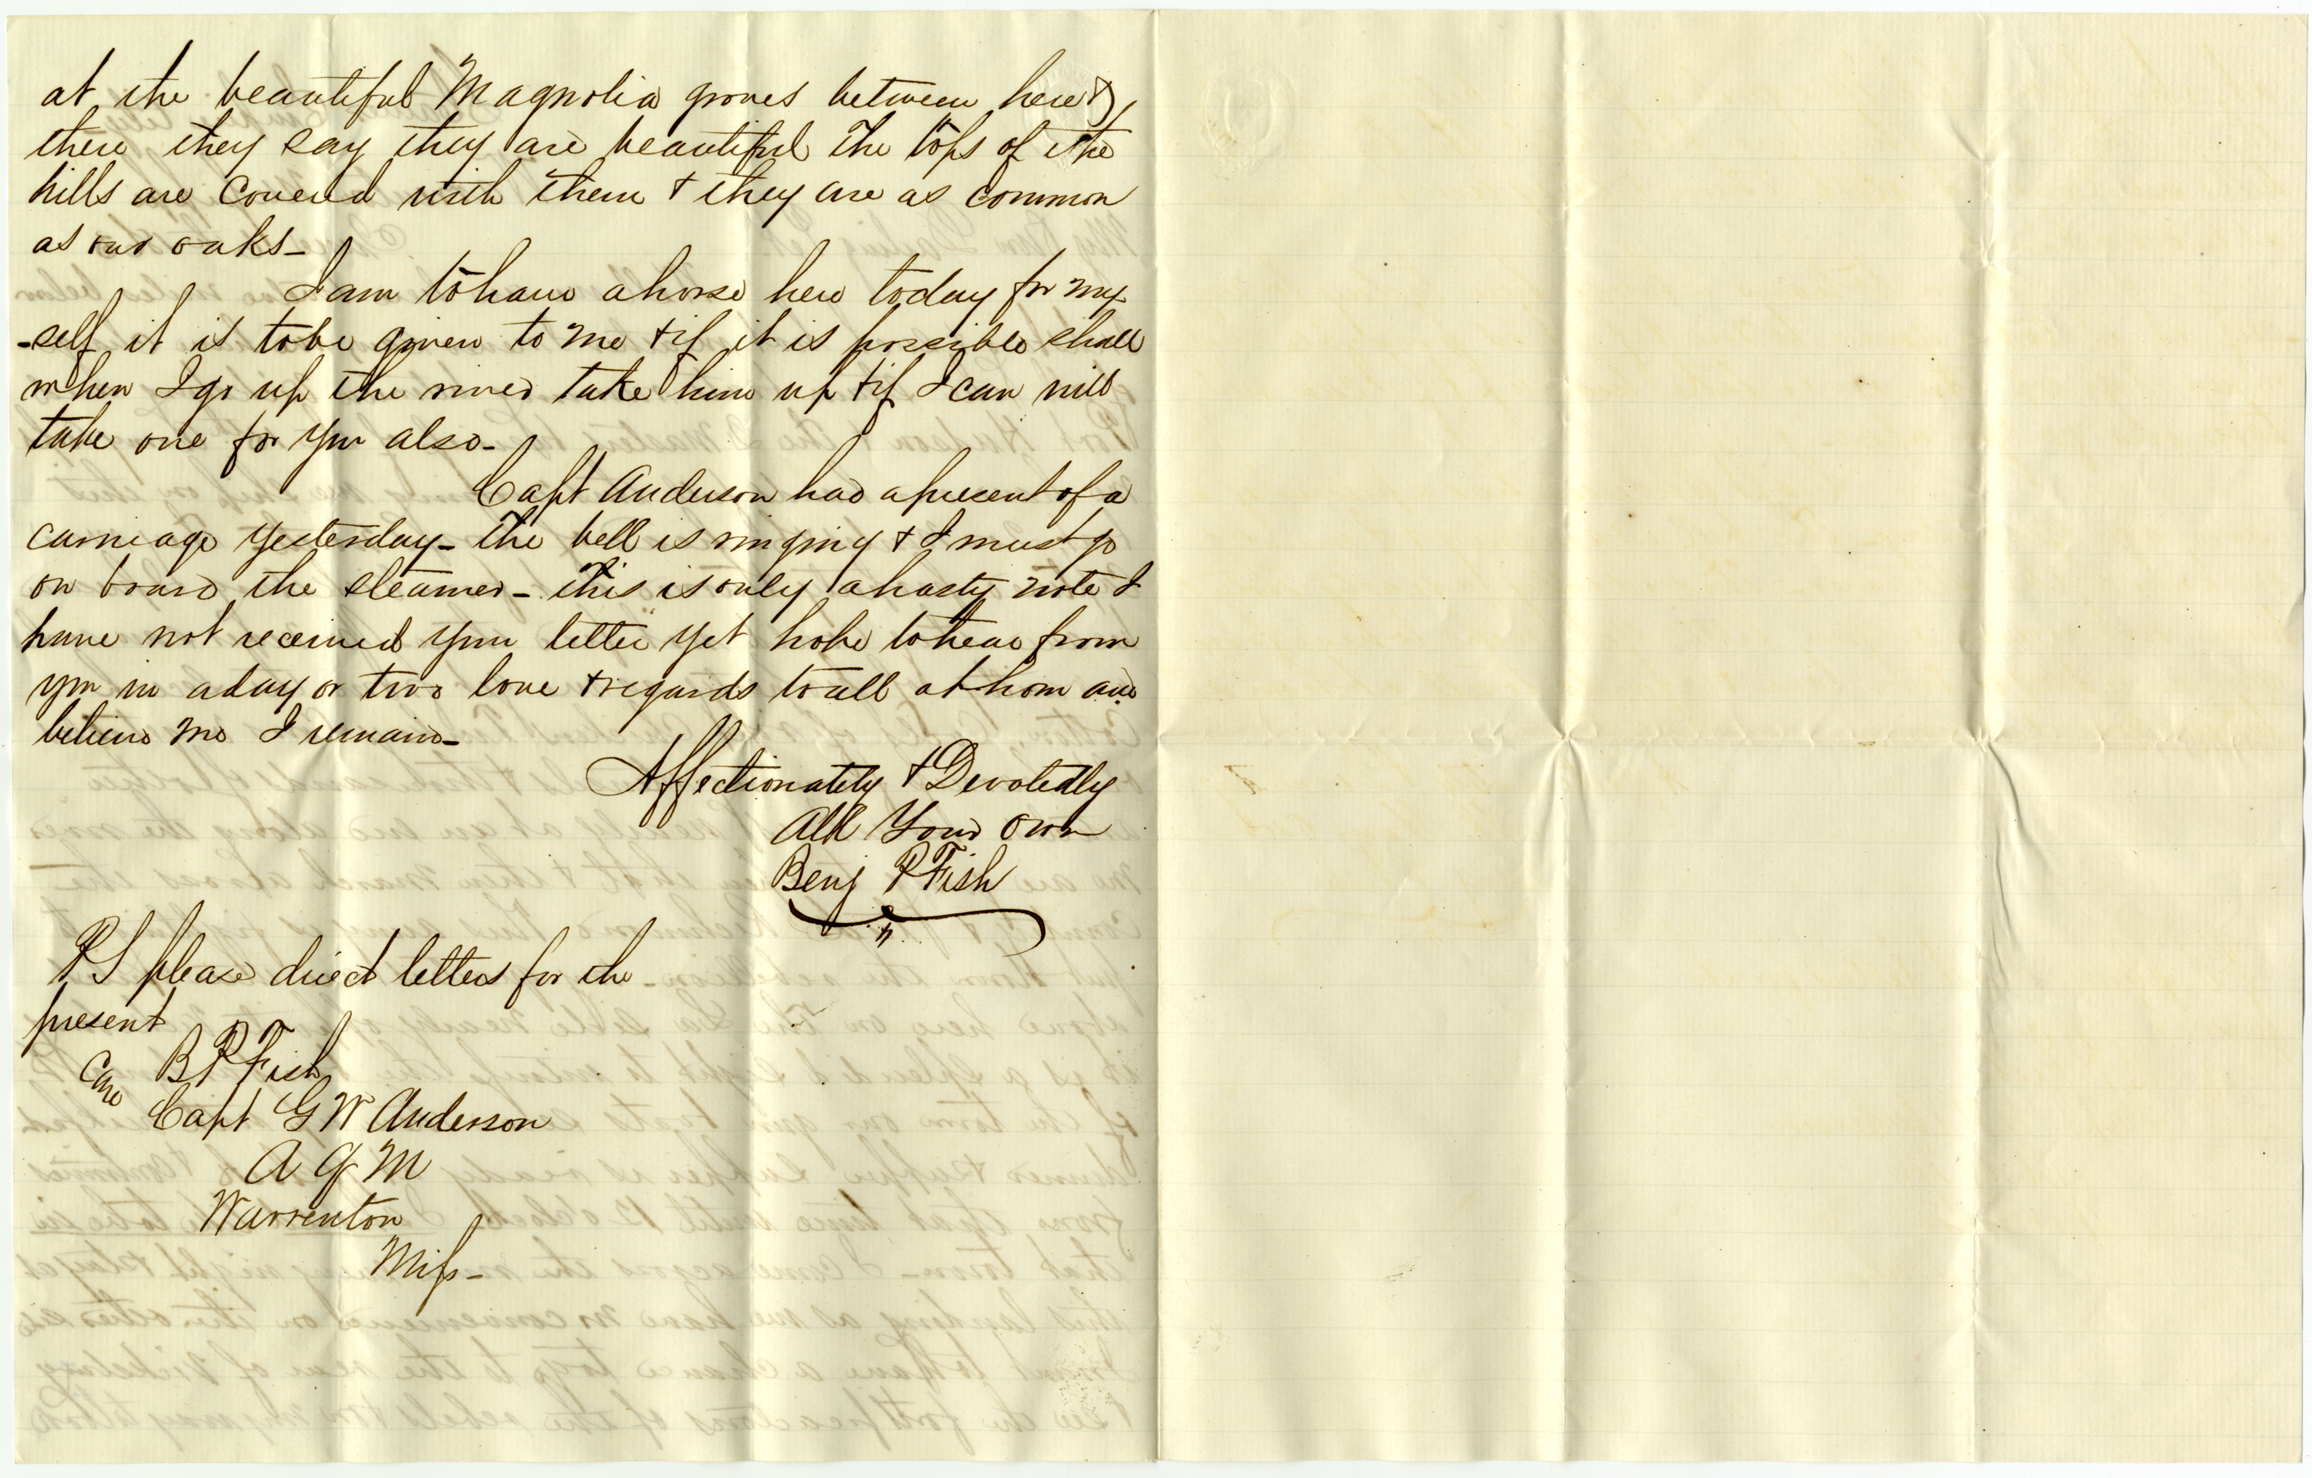 at the beautiful Magnolia groves between here &
there they say they are beautiful The tops of the
hills are covered with them & they are as common
as our oaks-
I am to have a horse here today for my
-self it is to be given to me & if it is possible shall
when I go up the river take him up & if I can will
take one for you also-
Capt Anderson had a present of a
carriage yesterday- The bell is ringing & I must go
on board the steamer- this is only a hasty note I
have not received your letter yet hope to hear from
you in a day or two love & regards to all at hom and
believe me I remain-
Affectionately & Devotedly
All Your Own
Benj P Fish
PS please direct letters for the
present
B P Fish
Care
Capt G W Anderson
A Q M
Warrenton
Miss-